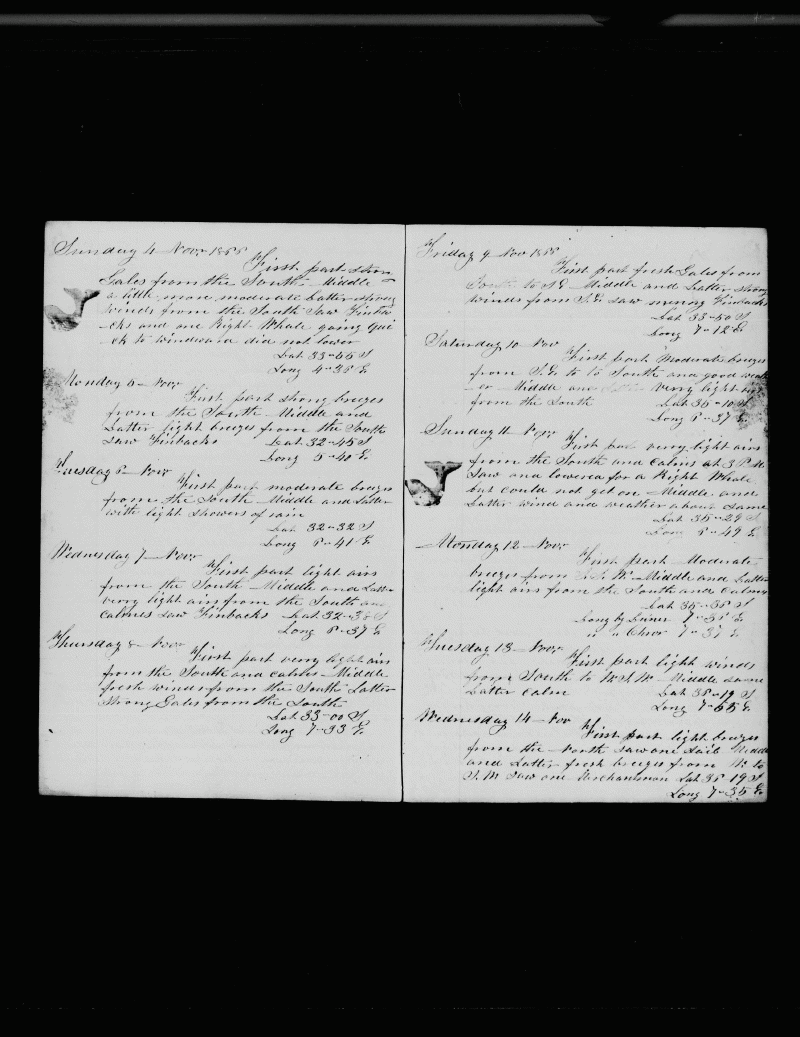 Sunday 4 Novr 1855
First part strong
Gales from the South Middle
a little more moderate Latter strong
winds from the South Saw Finba
cks and one Right Whale going qui
ck to windward did not lower
Lat 33-55 S
Long 4-38 E
Monday 5 Novr
First part strong breezes
from the South Middle and
Latter light breezes from the South
saw Finbacks Lat 32-45 S
Long 5-40 E
Tuesday 6 Novr
First part moderate breezes
from the South Middle and Latter
with light showers of rain
Lat 32-32 S
Long 6-41 E
Wednesday 7 Novr
First part light airs
from the South Middle and Latter
very light airs from the South and
calmes saw Finbacks Lat 32-38 S
Long 6-37 E
Thursday 8 Novr
First part very light airs
from the South and calms Middle
fresh winds from the South Latter
strong Gales from the South
Lat 33-00 S
Long 7-33 E
Friday 9 Nov 1855
First part fresh Gales from
South to SE Middle and Latter strong
winds from SE saw menny Finbacks
Lat 33-50 S
Long 7-12 E
Saturday 10 Nov
First part Moderate breezes
from S.E. to South and good weath
er Middle and Latter verry light
from the South Lat 35-10 S
Long 6-37 E
Sunday 11 Novr
First part very light airs
from the South and Calms at 3 P.M.
Saw and lowered for a Right Whale
but could not get on Middle and
Latter wind and weather about same
Lat 35-29 S
Long 6-49 E
Monday 12 Novr
First part Moderate
breezes from S.S.W. Middle and Latter
light airs from the South and Calms
Lat 35-35 S
Long by Lunar 7-51 E
" " Chro 7-37 E
Tuesday 13 Novr
First part light winds
from South to W.S.W. Middle same
Latter Calm Lat 35-19 S
Long 7-55 E
Wednesday 14 Nov
First part light breezes
from the North saw one Sail Middle
and Latter fresh breezes from W. to
S.W. saw one Merchantman Lat 35 19 S
Long 7-35 E